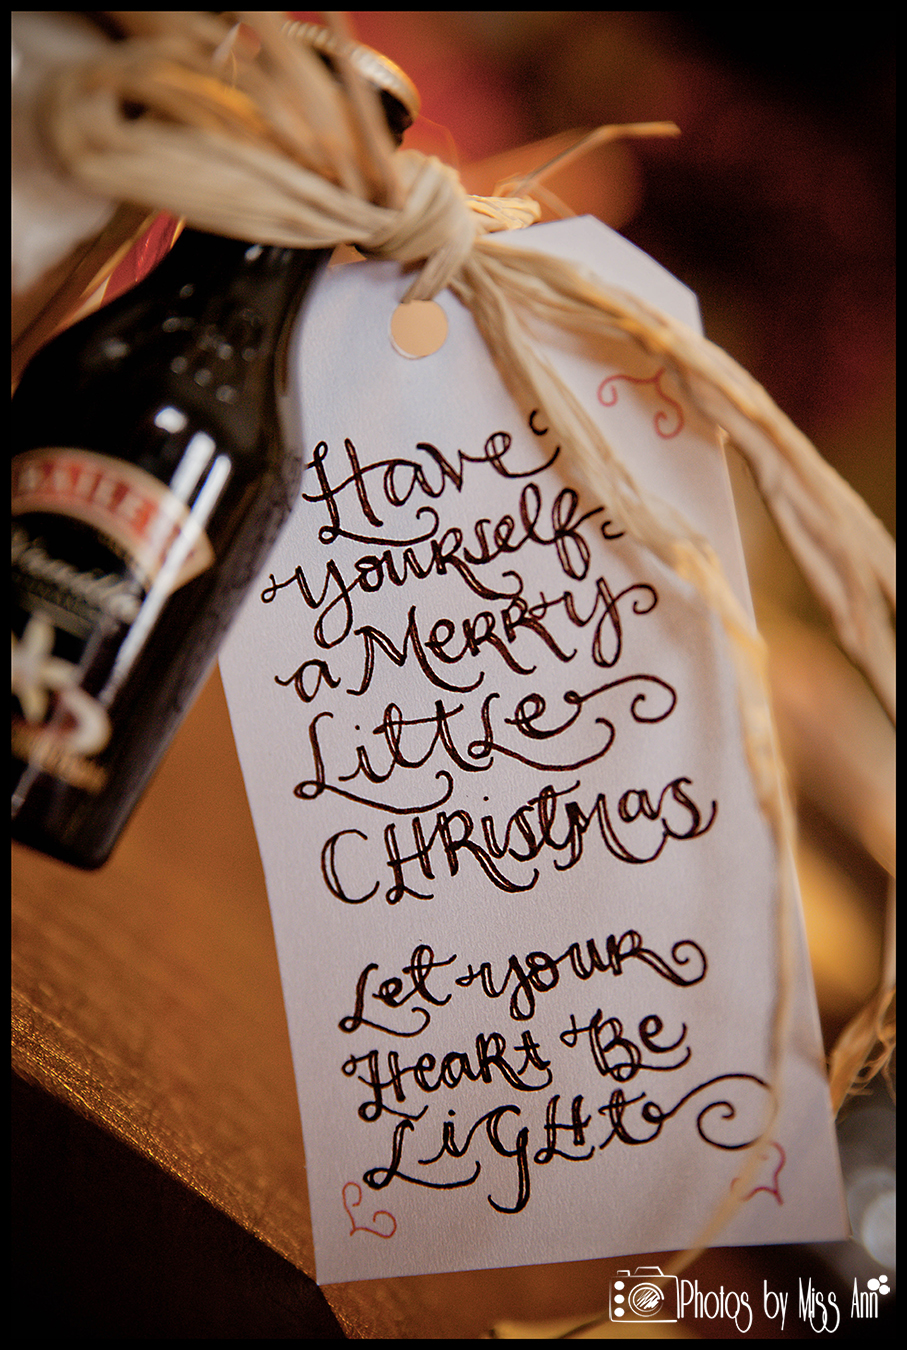 BAILEYS
Have
yourself
a Merry
Little
CHRistmas
Let your
Heart Be
LigHt
Photos by Miss Ann